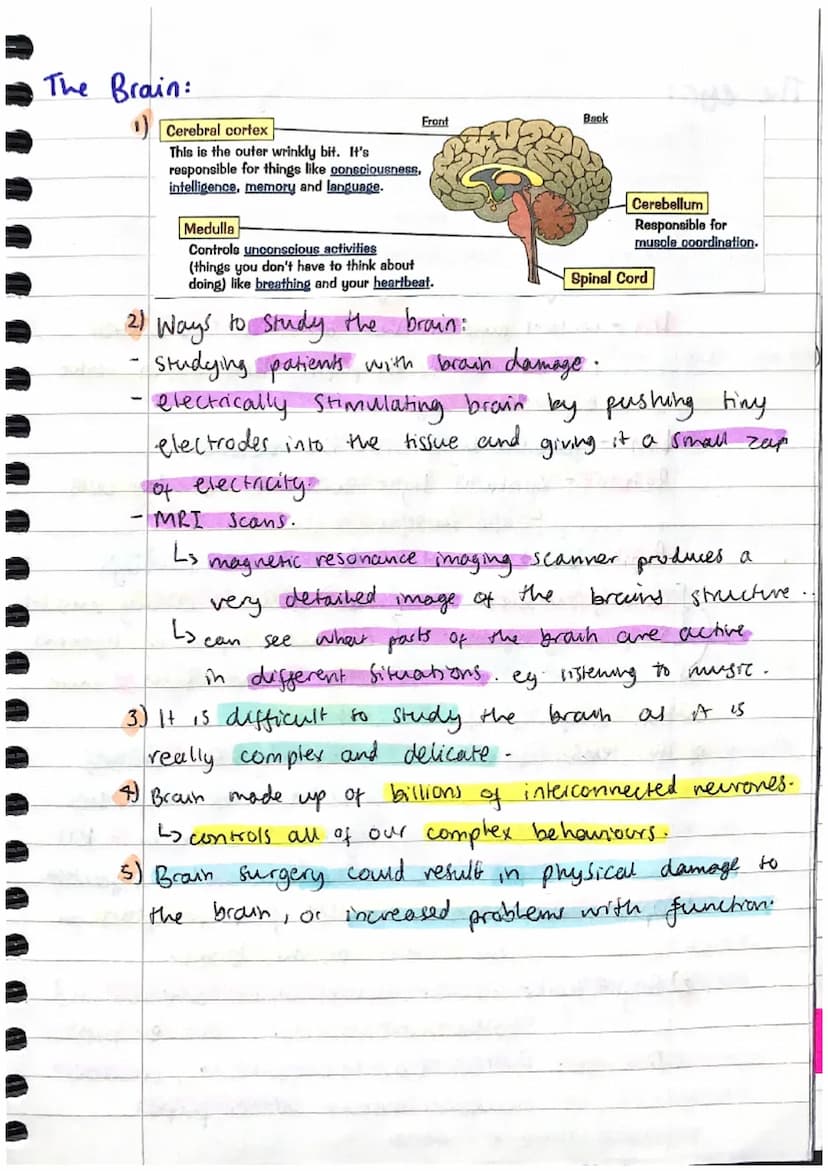 The Brain:
1)
Front
Back
Cerebral cortex
This is the outer wrinkly bit. It's
responsible for things like consciousness,
intelligence, memory and language.
Cerebellum
Responsible for
muscle coordination.
Medulla
Controls unconscious activities
(things you don't have to think about
doing) like breathing and your heartbeat.
Spinal Cord
2) Ways to study the brain:
- studying patients with brain damage.
- electrically stimulating brain by pushing tiny
electrodes into the tissue and giving it a small zap
of electricity.
- MRI scans.
↳ magnetic resonance imaging scanner produces a
very detailed image of the brains structure.
↳ can see what parts of the brain are active
in different situations. eg. listening to music.
3) It is difficult to study the brain as it is
really complex and delicate.
4) Brain made up of billions of interconnected neurones.
↳ controls all of our complex behaviours.
5) Brain surgery could result in physical damage to
the brain, or increased problems with function.